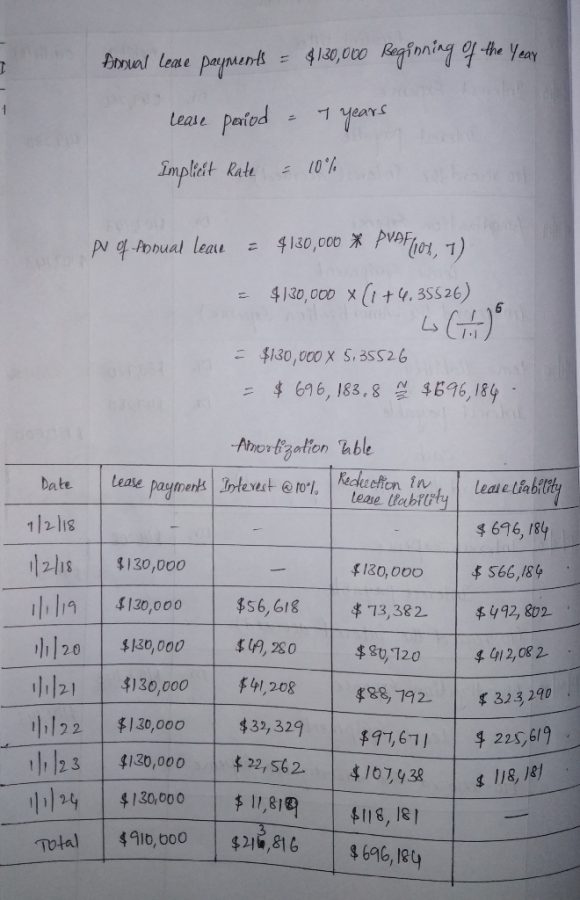 Annual lease payments = $130,000 Beginning of the Year
Lease period = 7 years
Implicit Rate = 10%
PV of Annual lease = $130,000 * PVAF(10%, 7)
= $130,000 x (1 + 4.35526)
↳ (1/1.1)^6
= $130,000 x 5.35526
= $ 696,183.8 ≅ $696,184.
Amortization Table
Date | Lease payments | Interest @ 10% | Reduction in lease liability | Lease Liability
1/2/18 | - | - | - | $ 696,184
1/2/18 | $130,000 | — | $130,000 | $ 566,184
1/1/19 | $130,000 | $56,618 | $ 73,382 | $492,802
1/1/20 | $130,000 | $49,280 | $80,720 | $ 412,082
1/1/21 | $130,000 | $41,208 | $88,792 | $ 323,290
1/1/22 | $130,000 | $32,329 | $97,671 | $ 225,619
1/1/23 | $130,000 | $22,562 | $107,438 | $ 118,181
1/1/24 | $130,000 | $11,819 | $118,181 | —
Total | $910,000 | $213,816 | $696,184